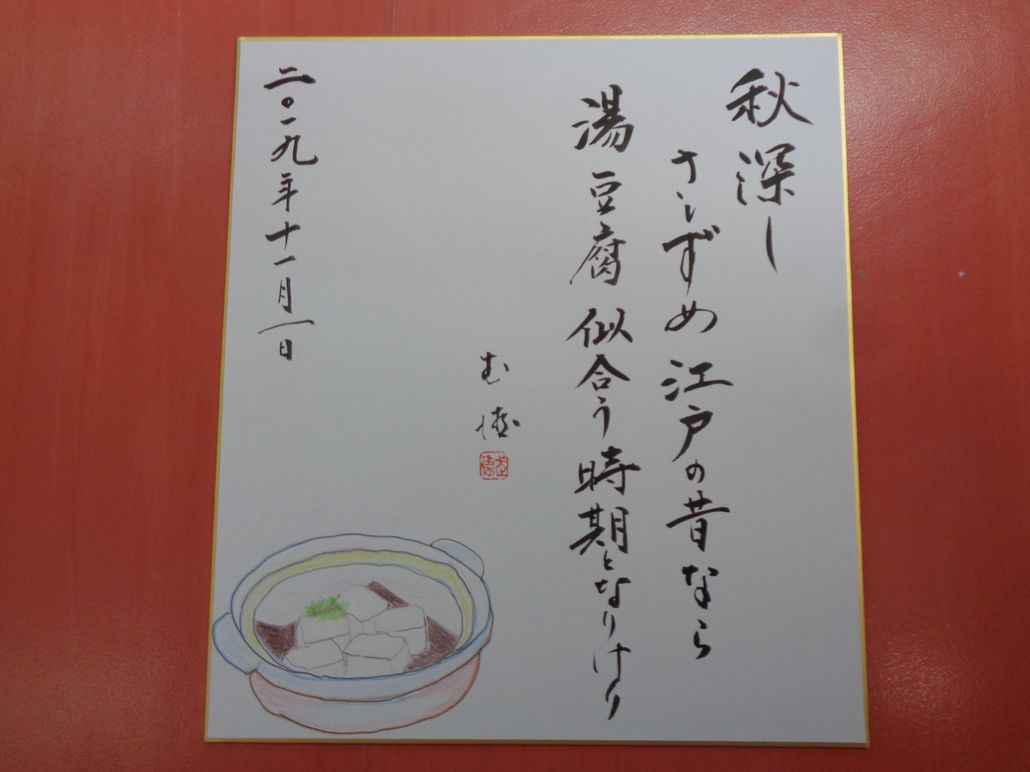 秋深し
さしずめ江戸の昔なら
湯豆腐似合う時期となりけり
二〇一九年十一月一日